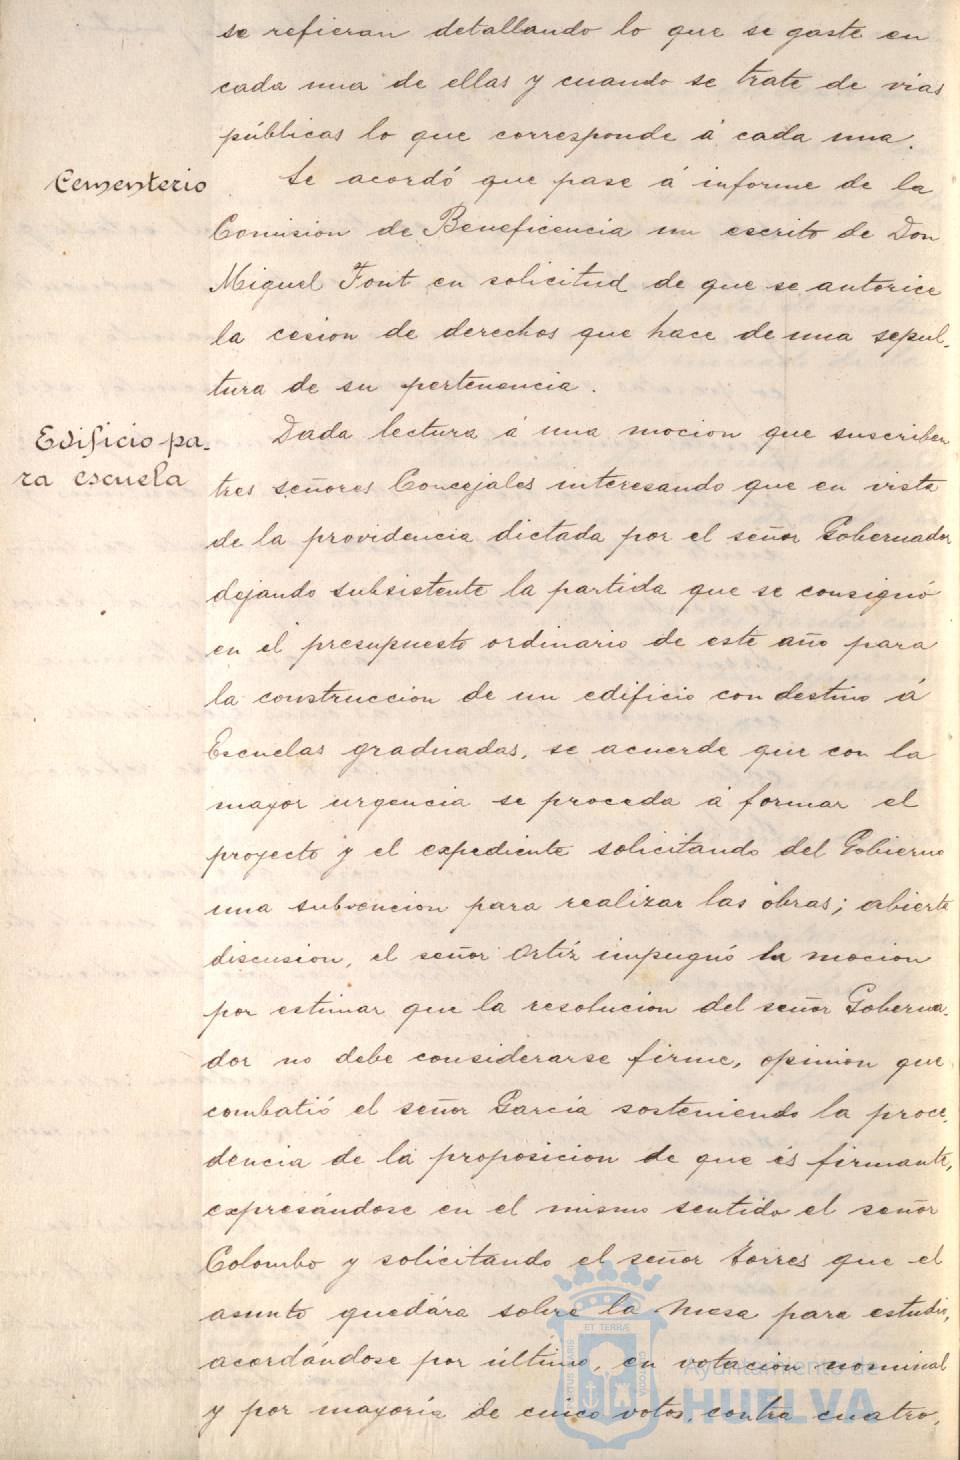 se refieran detallando lo que se gaste en
cada una de ellas y cuando se trate de vias
públicas lo que corresponde á cada una.
Cementerio
Se acordó que pase á informe de la
Comision de Beneficencia un escrito de Don
Miguel Font en solicitud de que se autorice
la cesion de derechos que hace de una sepul-
tura de su pertenencia.
Edificio pa-
ra escuela
Dada lectura á una mocion que suscriben
tres señores Concejales interesando que en vista
de la providencia dictada por el señor Gobernador
dejando subsistente la partida que se consignó
en el presupuesto ordinario de este año para
la construccion de un edificio con destino á
Escuelas graduadas, se acuerde que con la
mayor urgencia se proceda á formar el
proyecto y el expediente solicitando del Gobierno
una subvencion para realizar las obras; abierta
discusion, el señor Ortíz impugnó la mocion
por estimar que la resolucion del señor Goberna-
dor no debe considerarse firme, opinion que
combatió el señor García sosteniendo la proce-
dencia de la proposicion de que és firmante,
expresándose en el mismo sentido el señor
Colombo y solicitando el señor Torres que el
asunto quedára sobre la Mesa para estudio,
acordándose por último, en votacion nominal
y por mayoría de cinco votos, contra cuatro,
ET TERRÆ
PORTUS MARIS
CUSTODIA
Ayuntamiento de
HUELVA